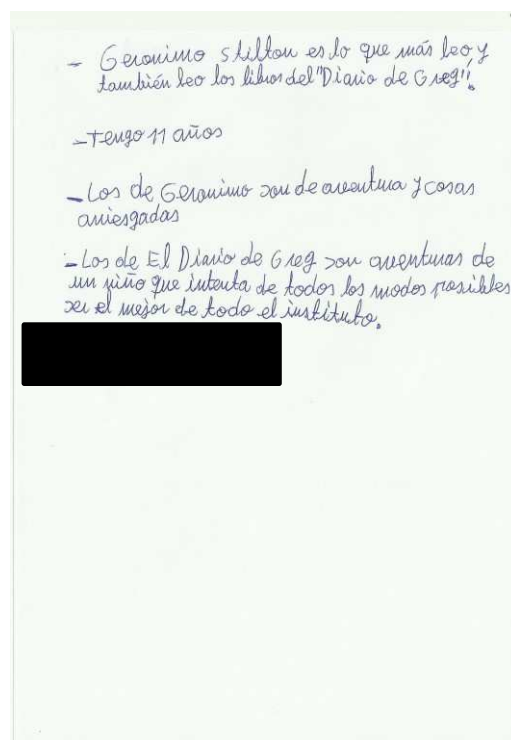 - Geronimo Stilton es lo que más leo y
también leo los libros del "Diario de Greg".
- Tengo 11 años
- Los de Geronimo son de aventura y cosas
arriesgadas
- Los de El Diario de Greg son aventuras de
un niño que intenta de todos los modos posibles
ser el mejor de todo el instituto.